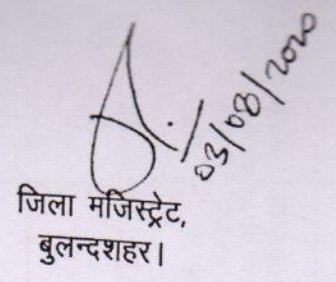 03/08/2020
जिला मजिस्ट्रेट,
बुलन्दशहर।